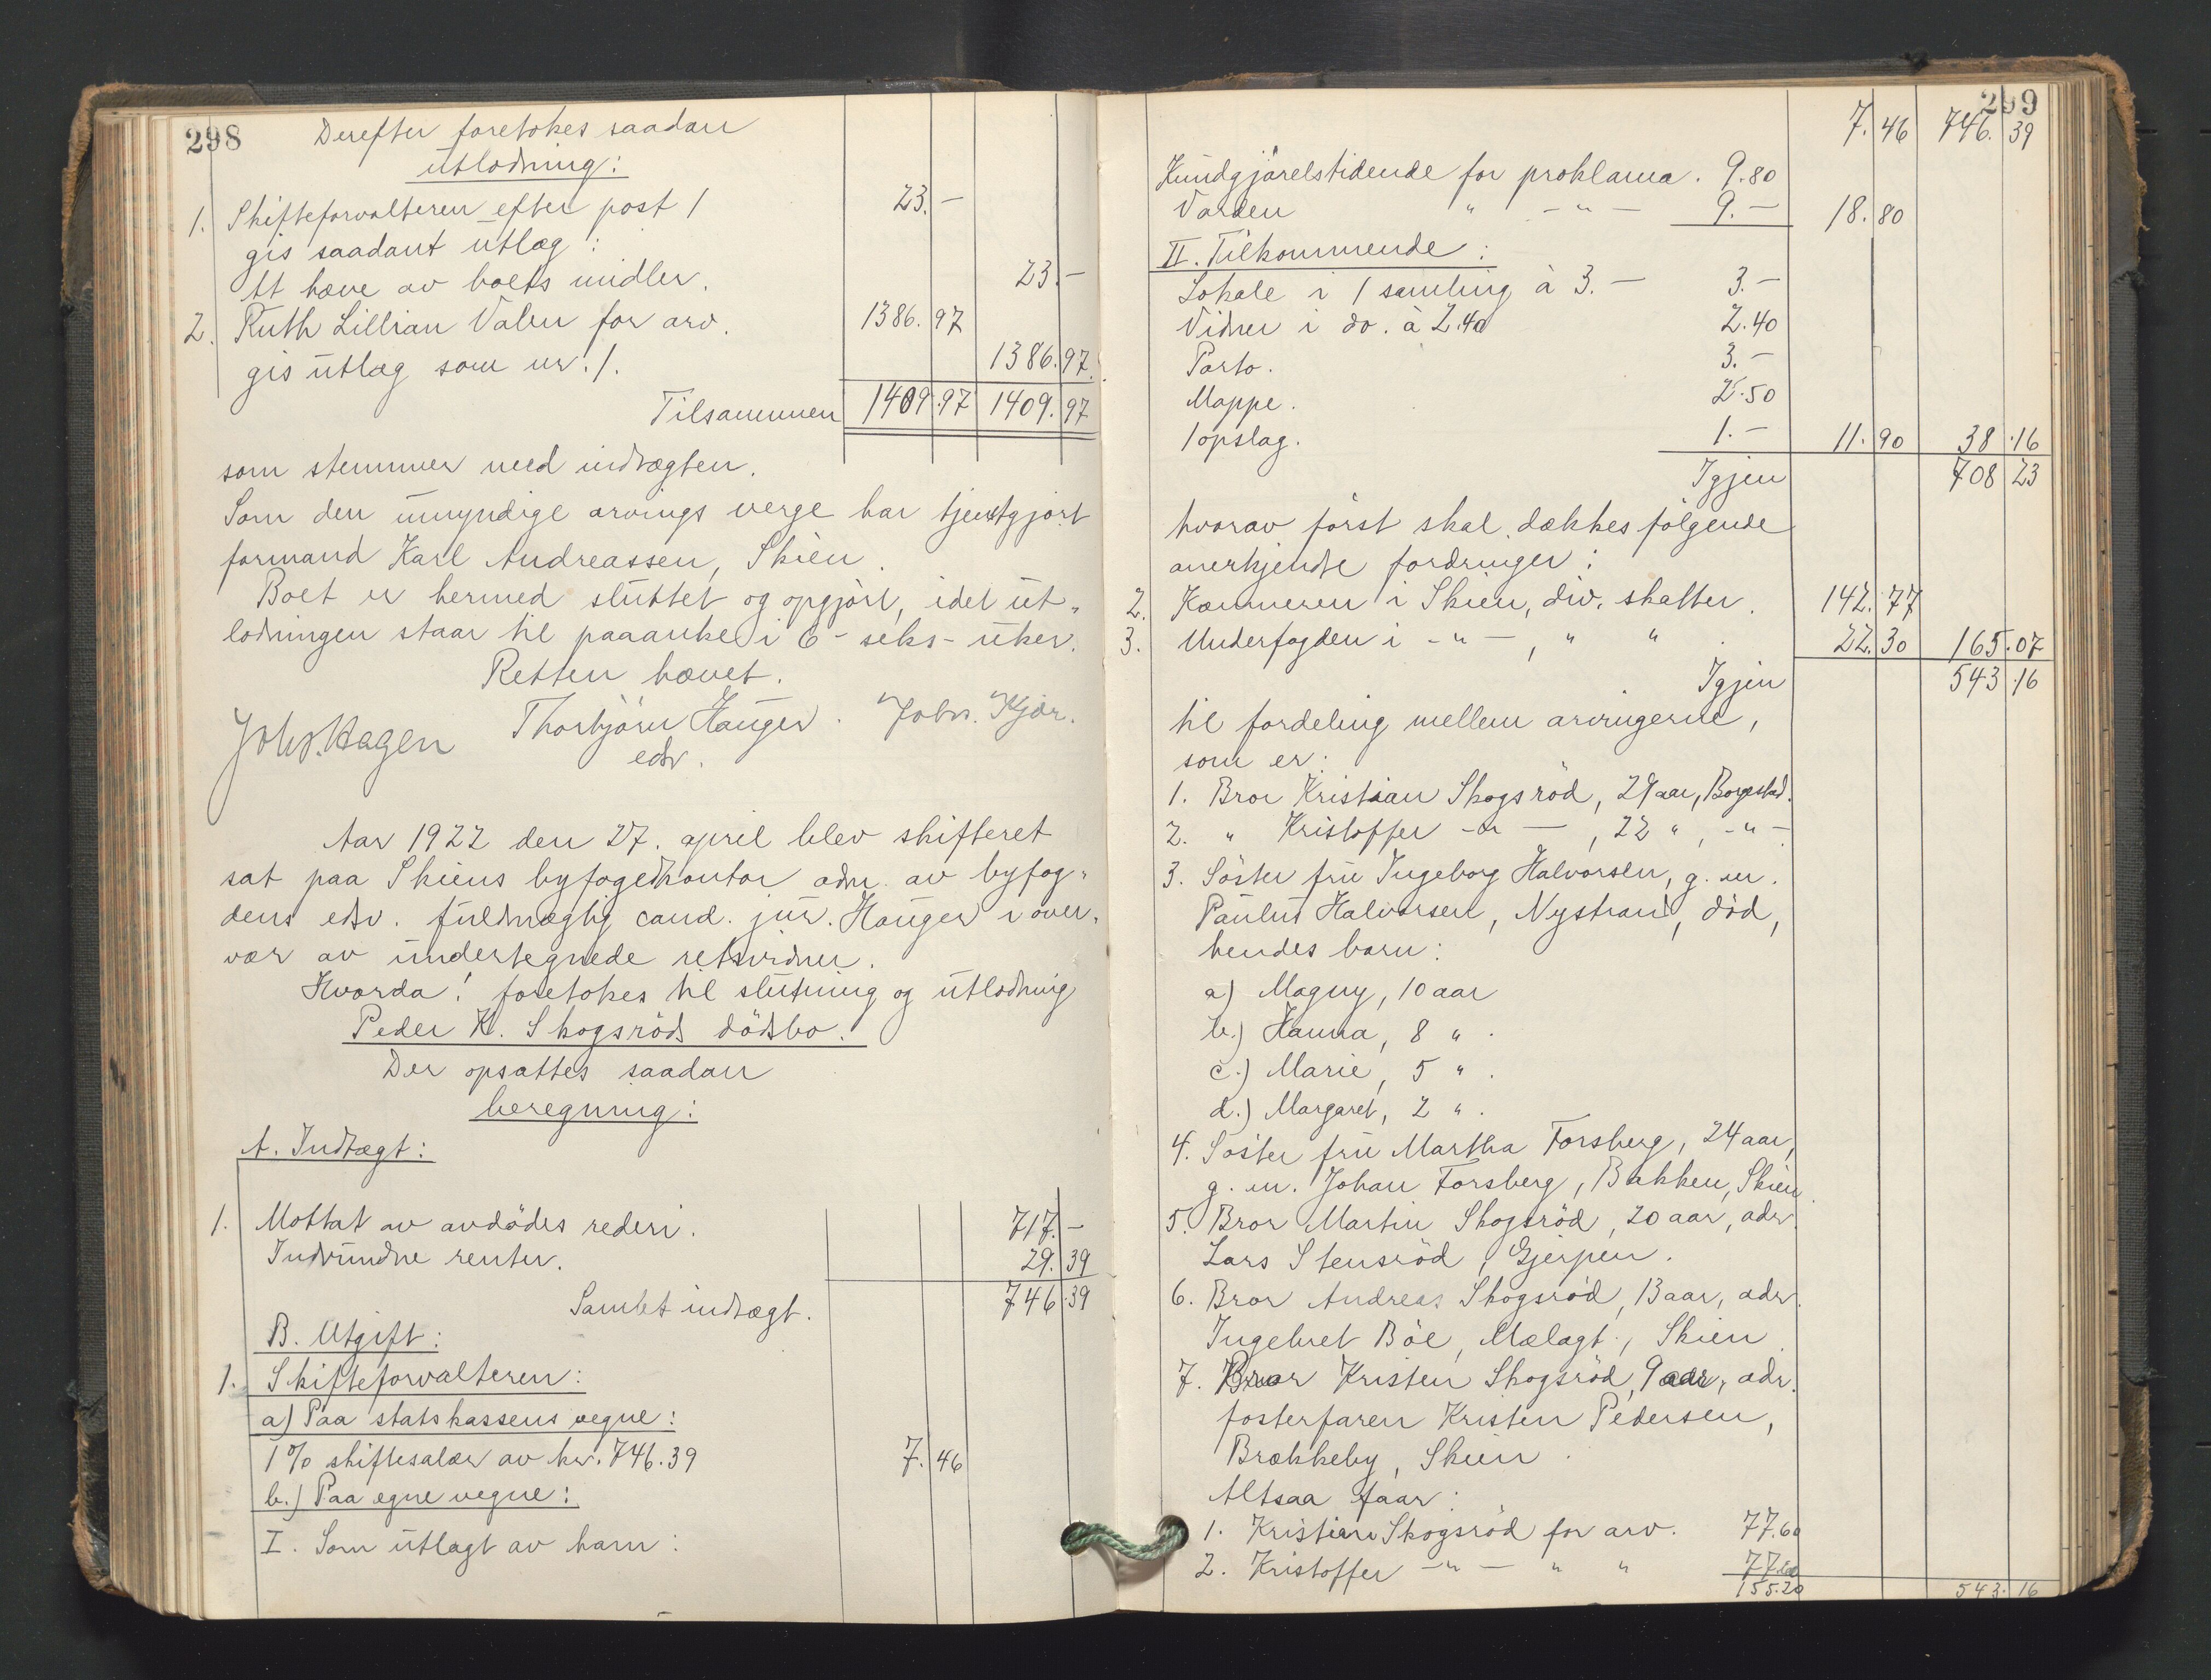 298
Derefter foretokes saadan
utlodning:
1. Skifteforvalteren efter post 1 23.-
gis saadant utlæg:
At hæve av boets midler. 23.-
2. Ruth Lillian Valen for arv. 1386.97
gis utlæg som nr. 1. 1386.97.
Tilsammen 1409.97 1409.97
som stemmer med indtægten.
Som den umyndige arvings verge har tjenstgjort
formand Karl Andreassen, Skien.
Boet er hermed sluttet og opgjört, idet ut-
lodningen staar til paaanke i 6 - seks - uker.
Retten hævet.
Johs. Hagen Thorbjörn Hauger. Johs. Kjær.
edsv.
Aar 1922 den 27. april blev skifteret
sat paa Skiens byfogedkontor adm. av byfog-
dens edsv. fuldmægtig cand. jur. Hauger i over-
vær av undertegnede retsvidner.
Hvorda: foretokes til slutning og utlodning
Peder K. Skogsröds dödsbo.
Der opsattes saadan
beregning:
A. Indtægt:
1. Mottat av avdödes rederi. 717.-
Indvundne renter. 29.39
Samlet indtægt. 746.39
B. Utgift:
1. Skifteforvalteren:
a) Paa statskassens vegne:
1% skiftesalær av kr. 746.39 7.46
b.) Paa egne vegne:
I. Som utlagt av ham:
299
7.46 746.39
Kundgjörelstidende for proklama. 9.80
Varden " - " - 9.- 18.80
II. Tilkommende:
Lokale i 1 samling à 3.- 3.-
Vidner i do. à 2.40 2.40
Porto. 3.-
Mappe. 2.50
1 opslag. 1.- 11.90 38.16
Igjen 708 23
hvorav först skal dækkes fölgende
anerkjendte fordringer:
2. Kæmneren i Skien, div. skatter. 142.77
3. Underfogden i - " - , " " . 22.30 165.07
Igjen 543.16
til fordeling mellem arvingerne,
som er:
1. Bror Kristian Skogsröd, 29 aar, Borgestad.
2. " Kristoffer - " - , 22 " , - " -
3. Söster fru Ingeborg Halvorsen, g. m.
Paulus Halvorsen, Nystrand, död,
hendes barn:
a) Magny, 10 aar
b.) Hanna, 8 " .
c.) Marie, 5 " .
d.) Margaret, 2 " .
4. Söster fru Martha Forsberg, 24 aar,
g. m. Johan Forsberg, Bakken, Skien.
5. Bror Martin Skogsröd, 20 aar, adr.
Lars Stensröd, Gjerpen.
6. Bror Andreas Skogsröd, 13 aar, adr.
Ingebret Böe, Mælagt., Skien.
7. Bror Kristen Skogsröd, 9 aar, adr.
fosterfaren Kristen Pedersen,
Brækkeby, Skien.
Altsaa faar:
1. Kristian Skogsröd for arv. 77.60
2. Kristoffer - " - " " 77.60
155.20 543.16